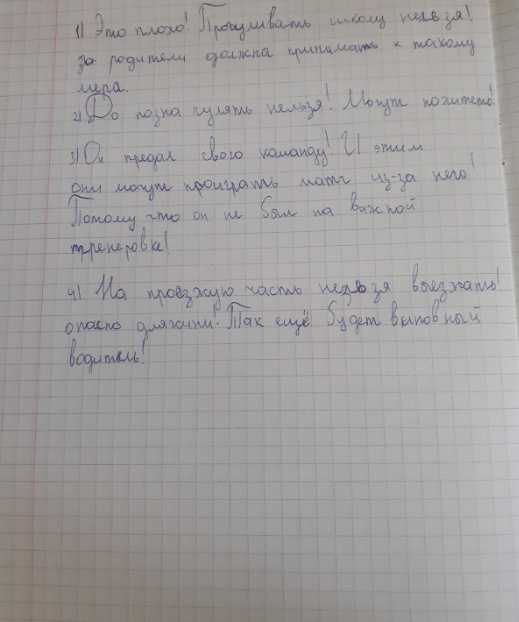 1) Это плохо! Прогуливать школу нельзя!
За родители должна принимать к такому
мера.
2) До позна гулять нельзя! Могут похитеть!
3) Он предал свого команду! И этим
они могут проиграть матч из-за него!
Потому что он не был на важной
тренеровке!
4) На проезжую часть нельзя выезжать!
опасно дляжизни! Так ещё будет выновный
водитель!